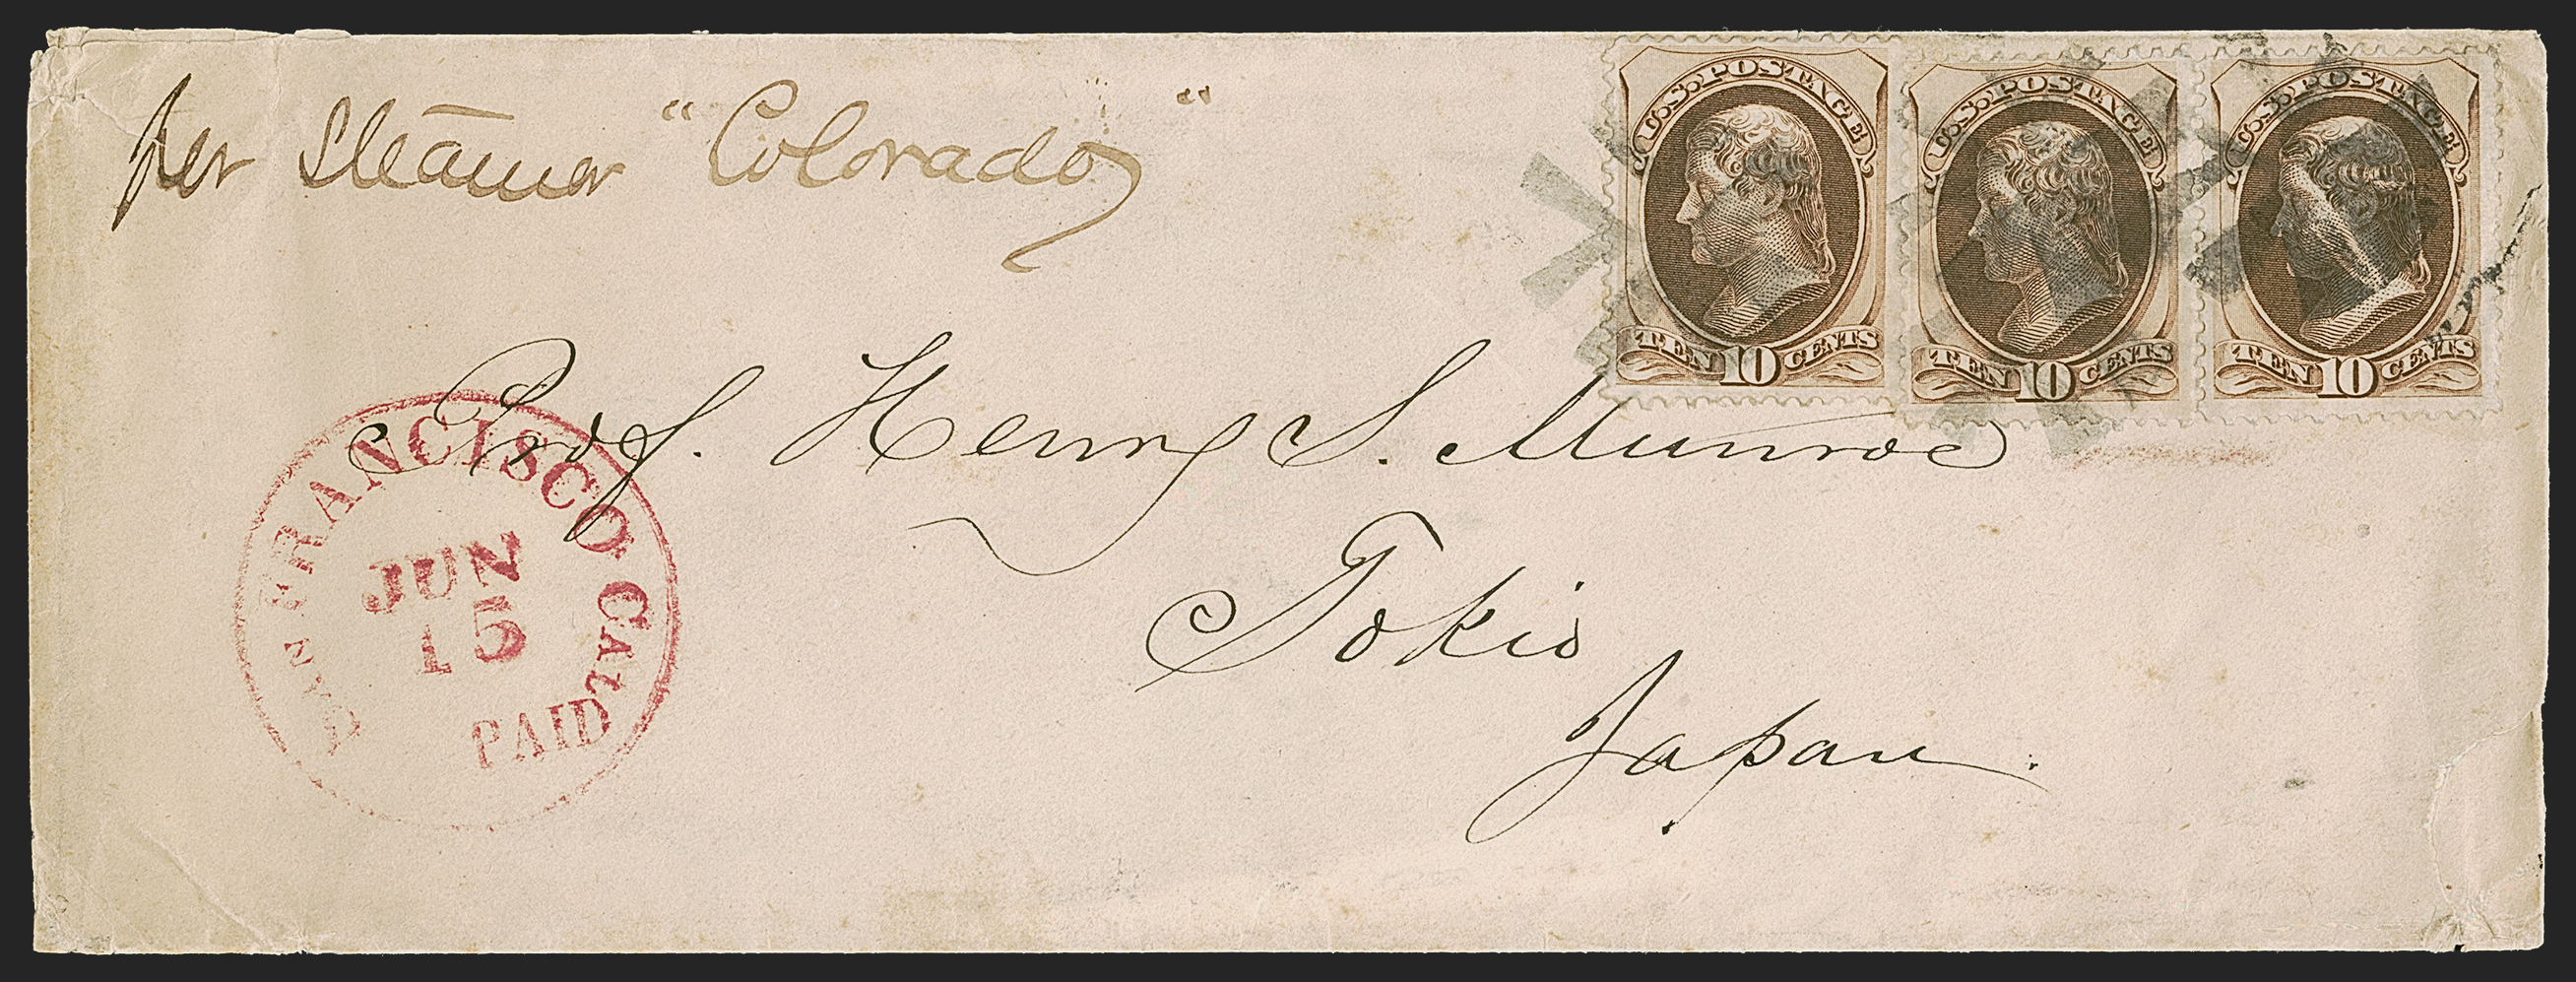 per Steamer "Colorado"
U.S. POSTAGE
TEN 10 CENTS
U.S. POSTAGE
TEN 10 CENTS
U.S. POSTAGE
TEN 10 CENTS
Prof. Henry S. Munroe
Tokio
Japan.
SAN FRANCISCO CAL
JUN
15
PAID